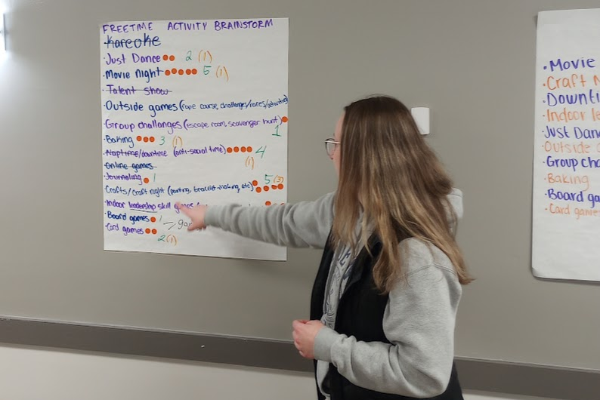 FREETIME ACTIVITY BRAINSTORM
• Kareoke
• Just Dance 2 (1)
• Movie Night 5 (1)
• Talent show
Outside games (rope course, challenges/races/
Group challenges (escape room, scavenger hunt)
1
• Baking 3 (1)
• Naptime/downtime (anti-social time) 4
(1)
• Online games
• Journaling 1
Crafts/craft night (painting, bracelet making, etc) 5
• Indoor leadership skill games
• Board games 1
• Card games
2 (1)
• Movie
• Craft N
• Downti
• Indoor le
• Just Danc
• Outside
• Group cha
• Baking
• Board ga
• Card game